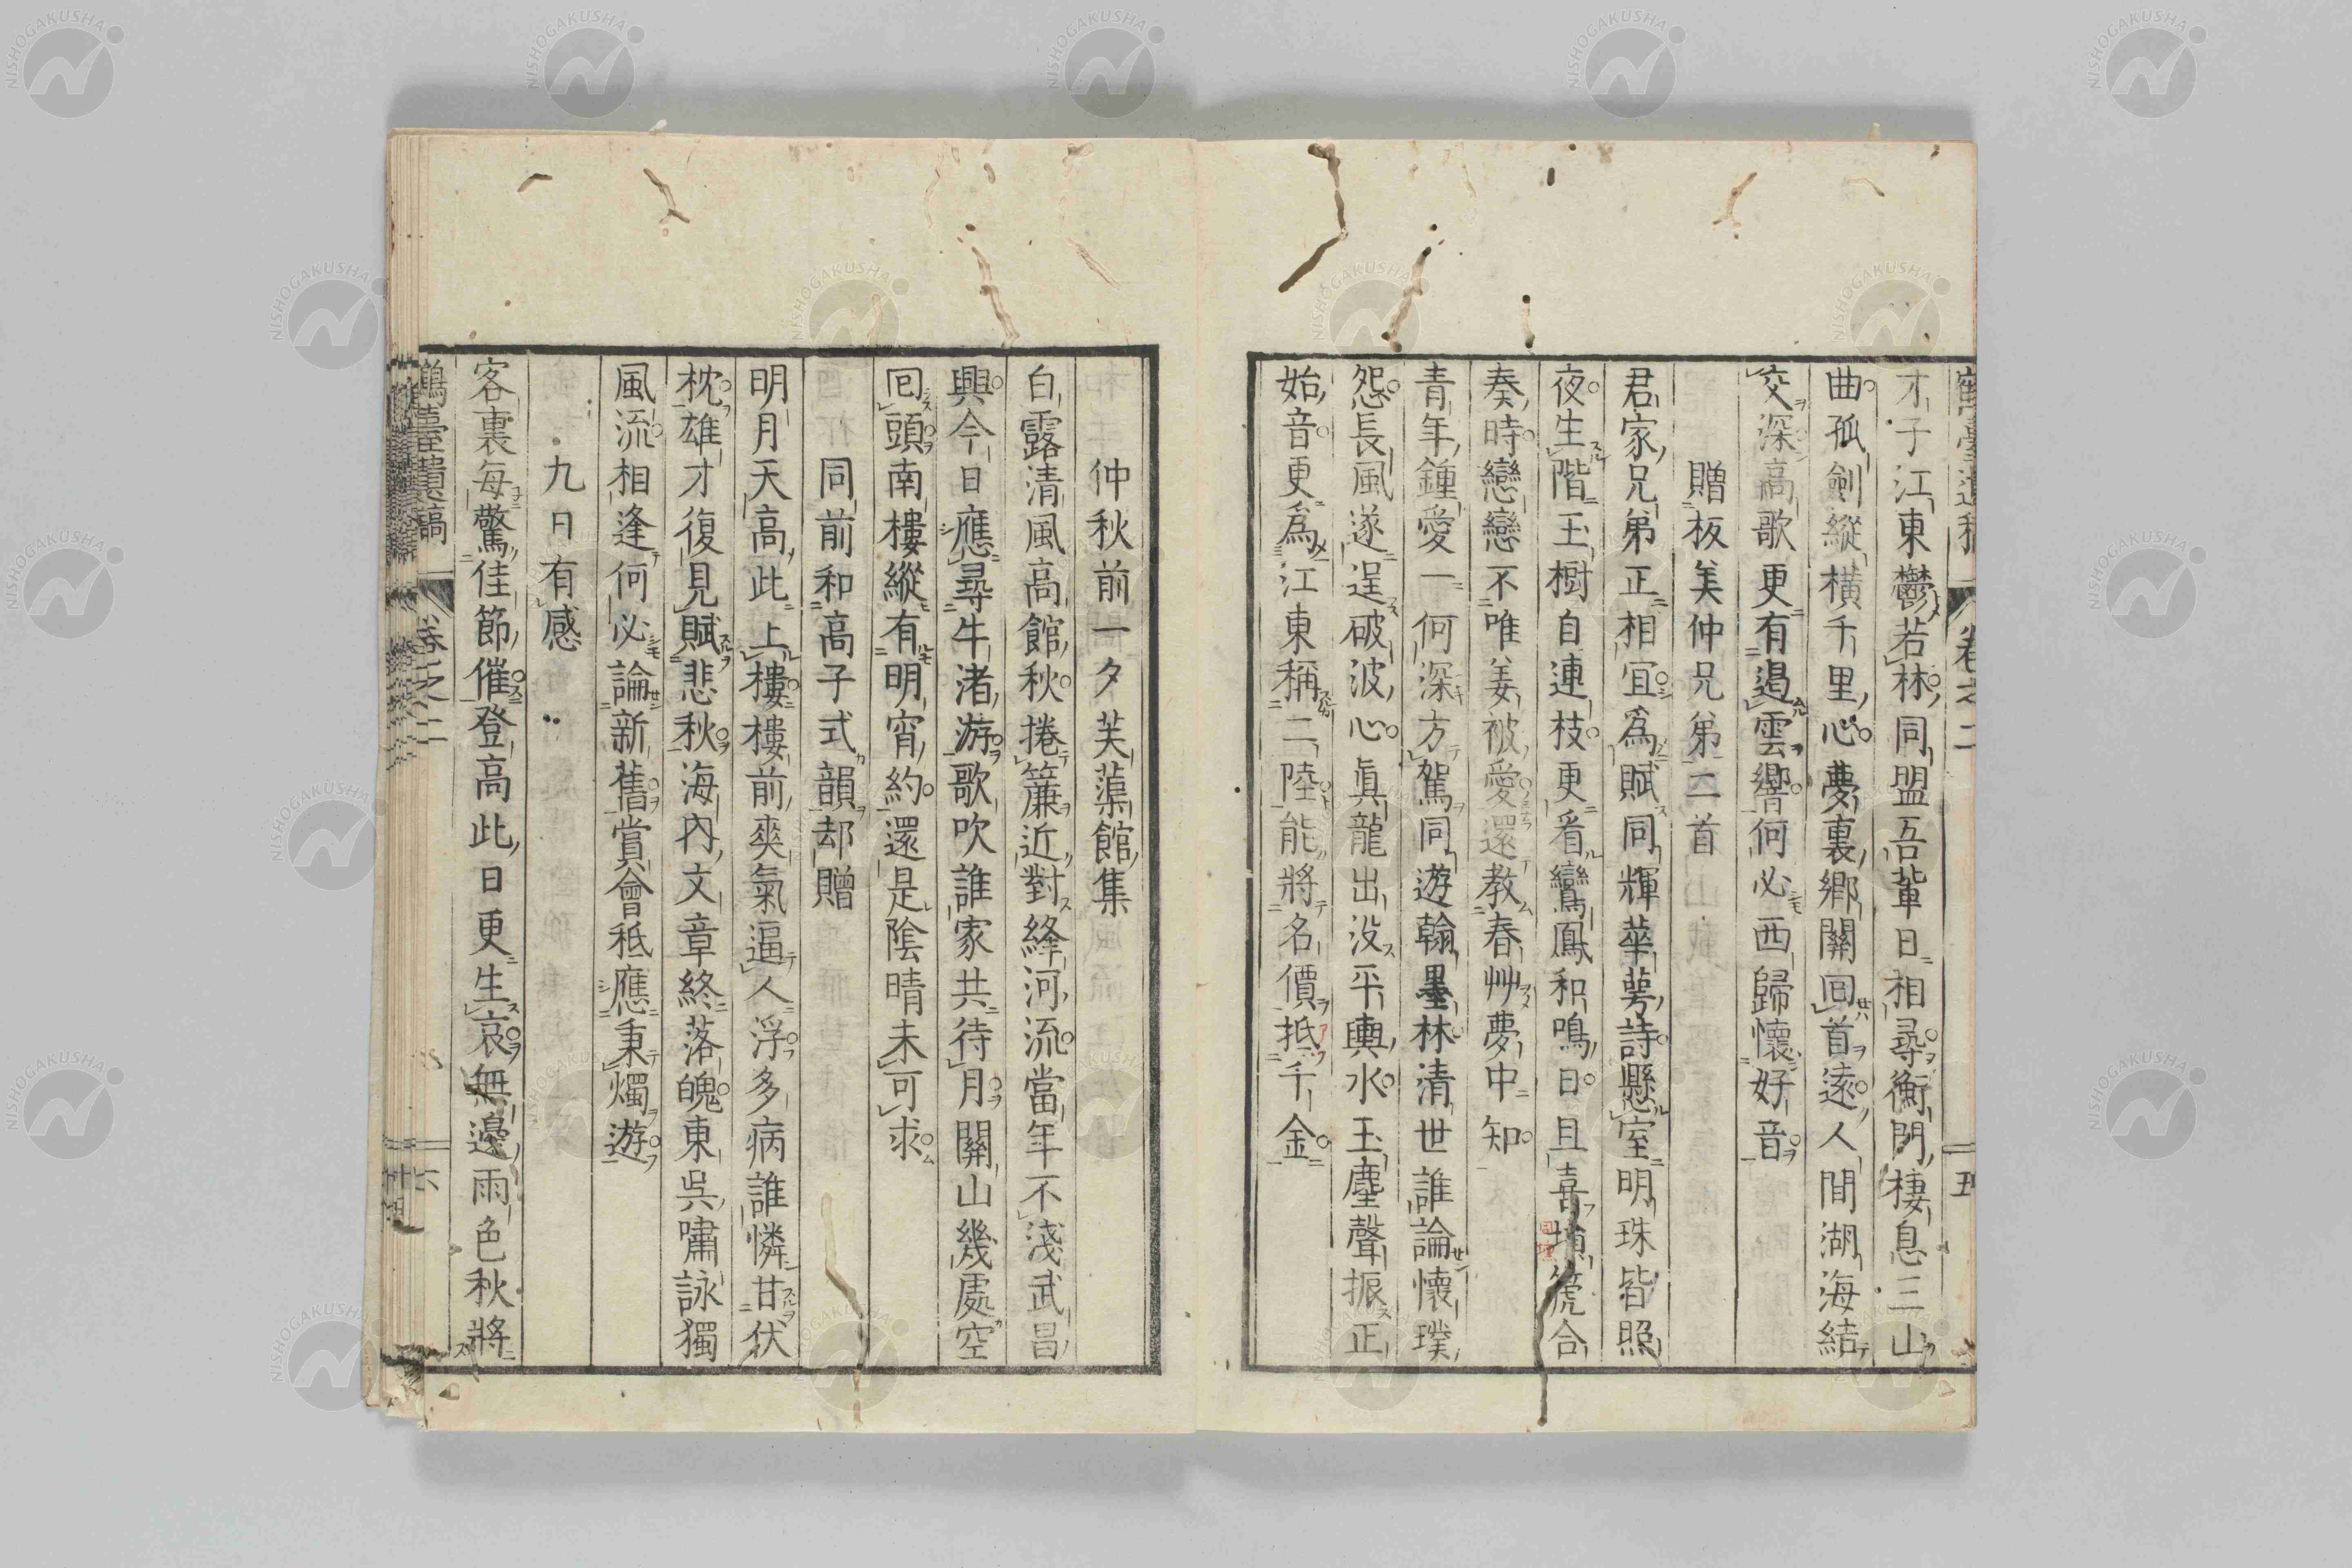 才子江東鬱若林同盟吾輩日相尋衡門棲息三山
曲孤劍縱橫千里心夢裏鄉關回首遠人間湖海結
交深高歌更有遏雲響何必西歸懷好音
贈板美仲兄弟二首
君家兄弟正相宜爲賦同輝華萼詩懸室明珠皆照
夜生階玉樹自連枝更看鸞鳳和鳴日且喜塤篪合
奏時戀戀不唯姜被愛還教春艸夢中知
青年鍾愛一何深方駕同遊翰墨林清世誰論懷璞
怨長風遂逞破波心眞龍出沒平輿水玉塵聲振正
始音更爲江東稱二陸能將名價抵千金
卷之二
五
仲秋前一夕芙蕖館集
白露清風高館秋捲簾近對絳河流當年不淺武昌
興今日應尋牛渚游歌吹誰家共待月關山幾處空
回頭南樓縱有明宵約還是陰晴未可求
同前和高子式韻却贈
明月天高此上樓樓前爽氣逼人浮多病誰憐甘伏
枕雄才復見賦悲秋海內文章終落魄東吳嘯詠獨
風流相逢何必論新舊賞會秪應秉燭遊
九日有感
客裏每驚佳節催登高此日更生哀無邊雨色秋將
鶴臺遺稿
卷之二
六
NISHOGAKUSHA